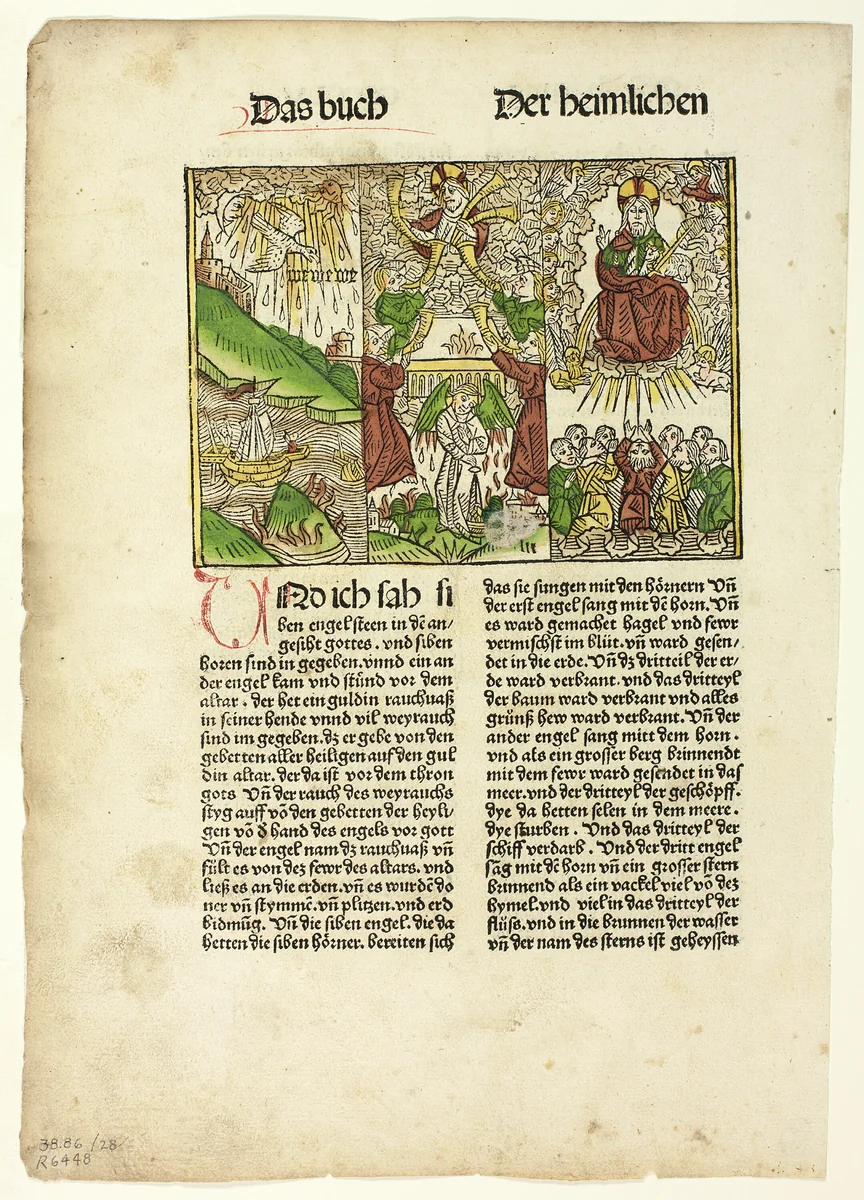 Das buch
Der heimlichen
we we we
VNd ich sah si
ben engel steen in dē an/
gesiht gottes . vnd siben
horen sind in gegeben. vnnd ein an
der engel kam vnd stůnd vor dem
altar . der het ein guldin rauchuaß
in seiner hende vnnd vil weyrauch
sind im gegeben. dz er gebe von den
gebetten aller heiligen auf den gul
din altar. der da ist vor dem thron
gots Vn̄ der rauch des weyrauchs
styg auff võ den gebetten der heyli/
gen võ d̕ hand des engels vor gott
Vn̄ der engel nam dz rauchuaß vn̄
fült es von dez fewr des altars. vnd
ließ es an die erden. vn̄ es wurdē do
ner vn̄ stymmē. vn̄ plitzen. vnd erd
bidmūg. Vn̄ die siben engel. die da
hetten die siben hörner. bereiten sich
das sie sungen mit den hörnern Vn̄
der erst engel sang mit dē horn. Vn̄
es ward gemachet hagel vnd fewr
vermischst im blůt. vn̄ ward gesen/
det in die erde. Vn̄ dz dritteil der er/
de ward verbrant. vnd das dritteyl
der baum ward verbrant vnd alles
grünß hew ward verbrant. Vn̄ der
ander engel sang mitt dem horn .
vnd als ein grosser berg brinnendt
mit dem fewr ward gesendet in das
meer. vnd der dritteyl der geschöpff.
dye da hetten selen in dem meere .
dye sturben . Vnd das dritteyl der
schiff verdarb . Vnd der dritt engel
sāg mit dē horn vn̄ ein grosser stern
brinnend als ein vackel viel võ dez
hymel. vnd viel in das dritteyl der
flüss. vnd in die brunnen der wasser
vn̄ der nam des sterns ist geheyssen
38.86 /28
R6448